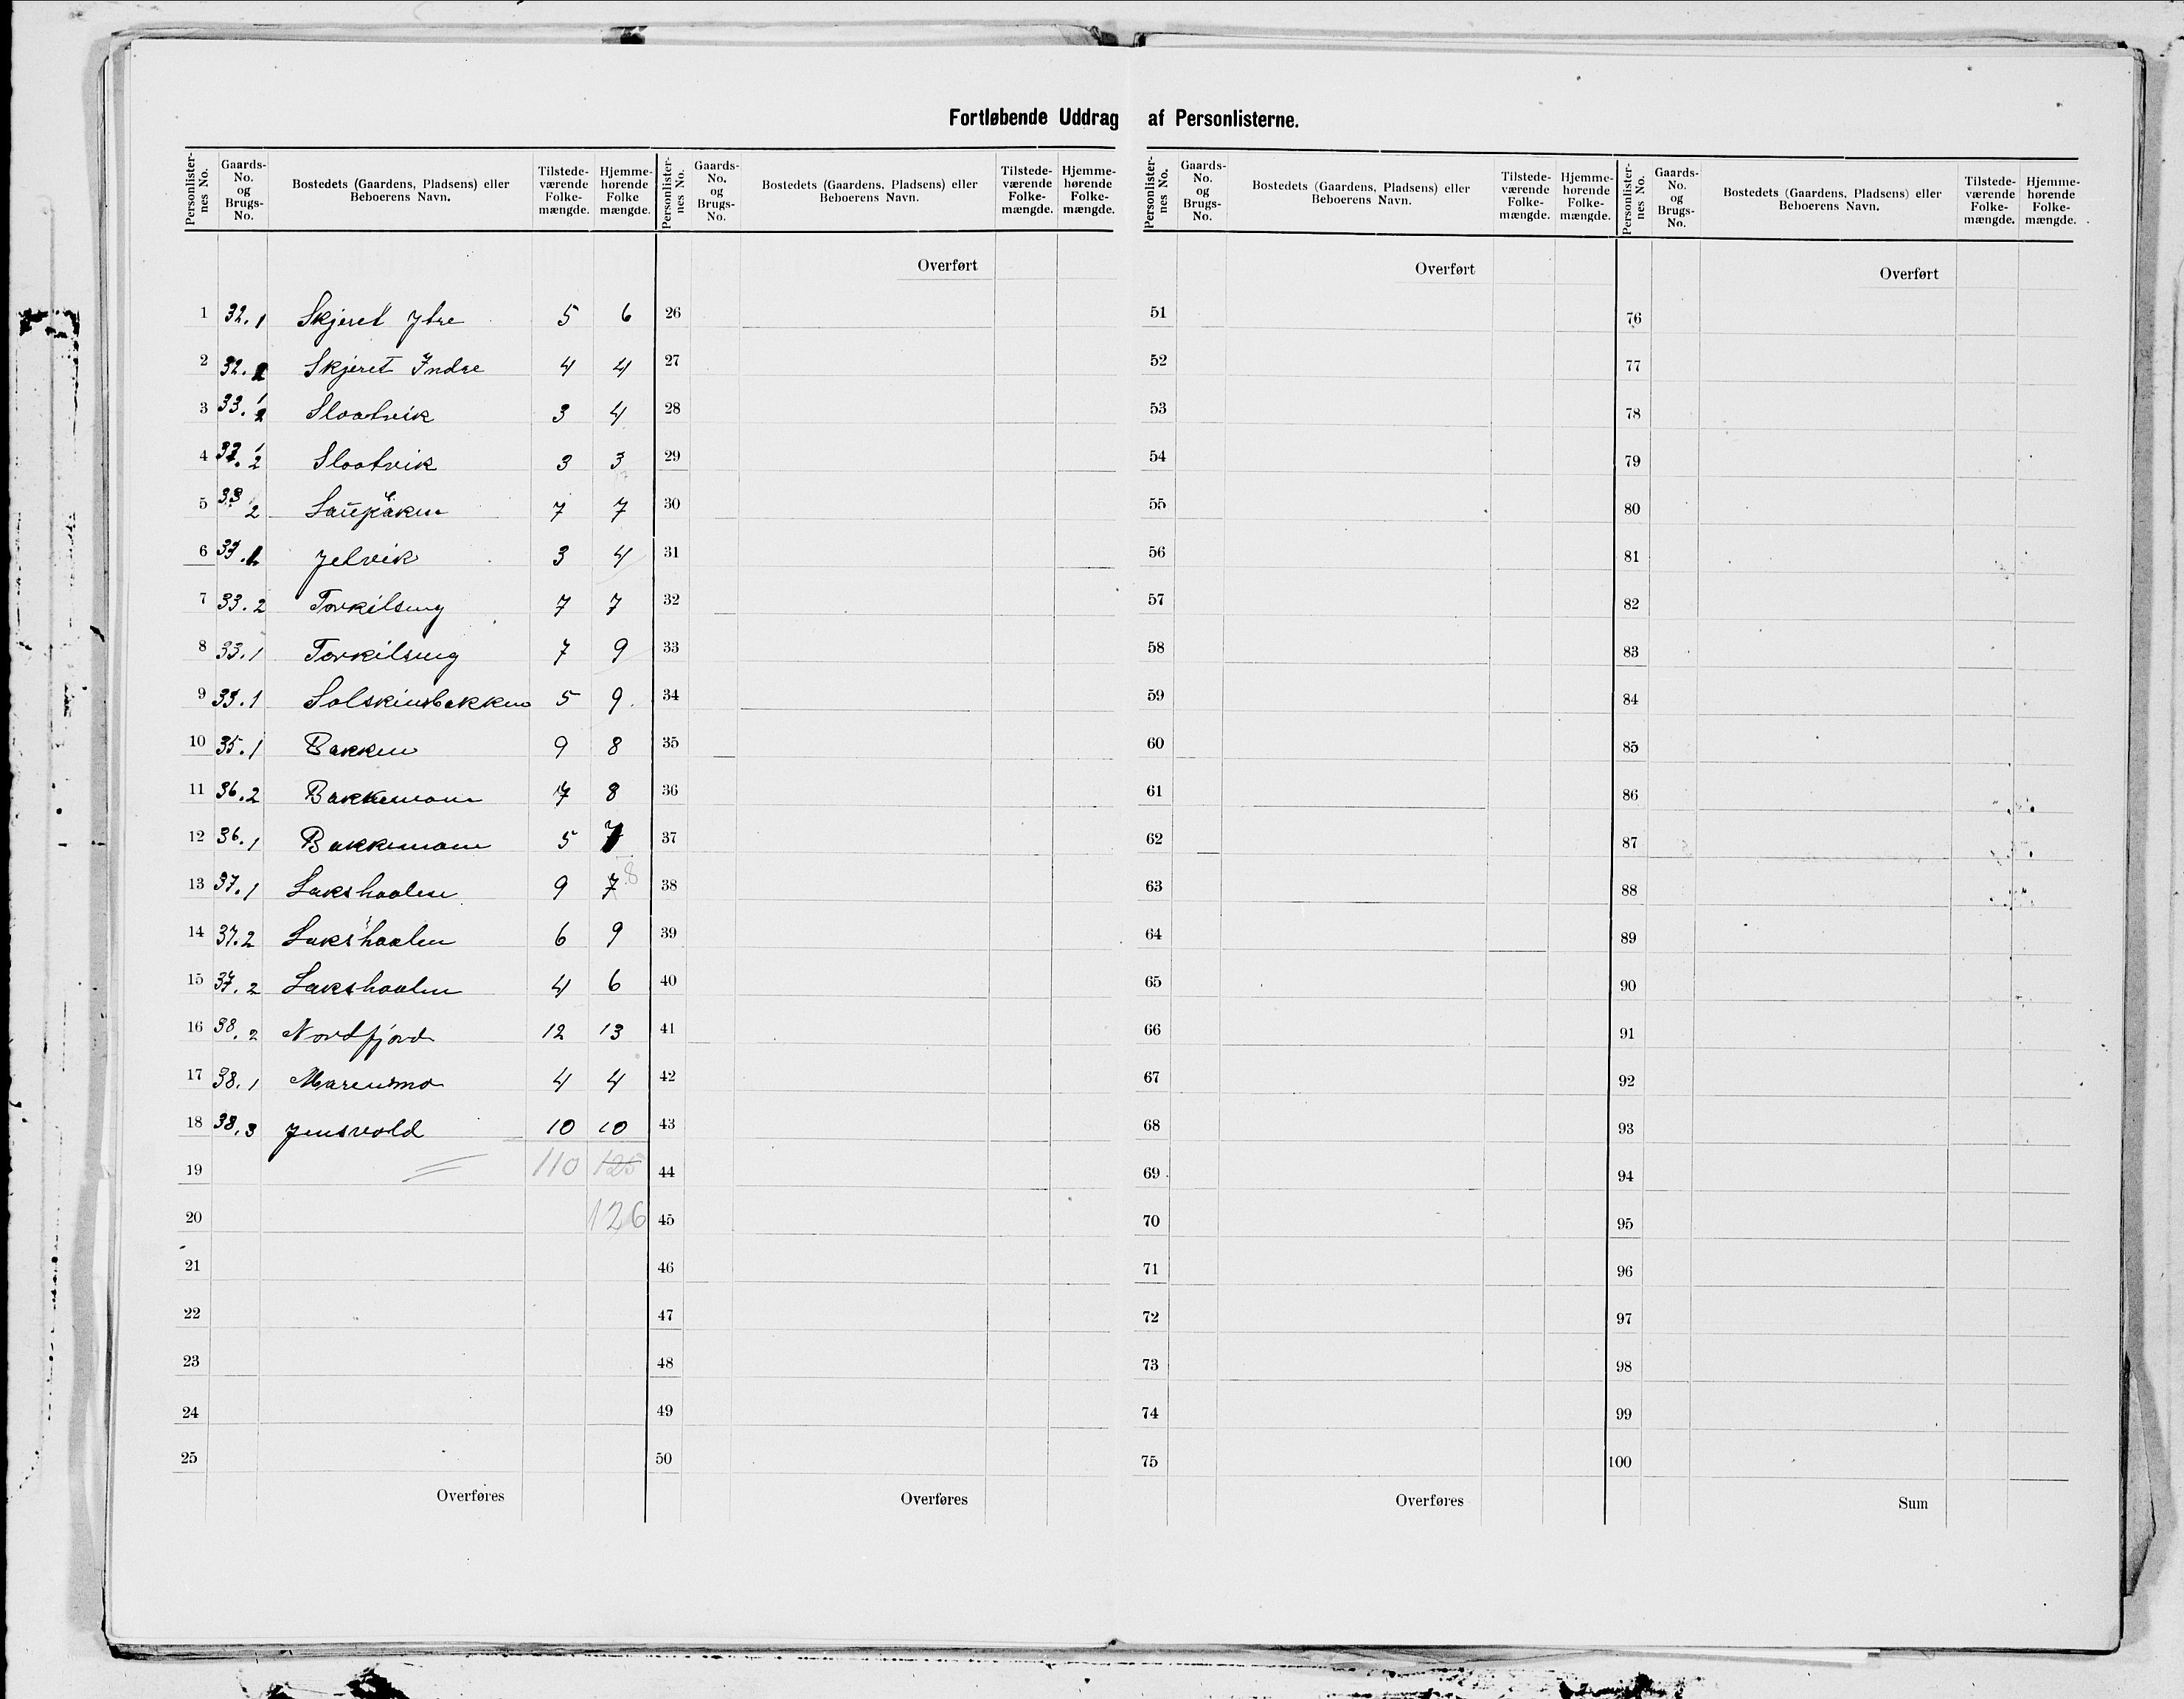 Fortløbende Uddrag af Personlisterne.
Personlister-nes No. Gaards-No. og Brugs-No. Bostedets (Gaardens, Pladsens) eller Beboerens Navn. Tilstede-værende Folke-mængde. Hjemme-hørende Folke mængde.
Personlister-nes No. Gaards-No. og Brugs-No. Bostedets (Gaardens, Pladsens) eller Beboerens Navn. Tilstede-værende Folke-mængde. Hjemme-hørende Folke-mængde.
Personlister-nes No. Gaards-No. og Brugs-No. Bostedets (Gaardens, Pladsens) eller Beboerens Navn. Tilstede-værende Folke-mængde. Hjemme-hørende Folke-mængde.
Personlister-nes No. Gaards-No. og Brugs-No. Bostedets (Gaardens, Pladsens) eller Beboerens Navn. Tilstede-værende Folke-mængde. Hjemme-hørende Folke-mængde.
Overført Overført Overført
1 32.1 Skjeret Ytre 5 6 26 51 76
2 32. Skjeret Indre 4 4 27 52 77
3 33. Slaatvik 3 4 28 53 78
4 Slaatvik 3 3 29 54 79
5 33 2 7 7 30 55 80
6 33. Jelvik 3 4 31 56 81
7 33.2 Torkilseng 7 7 32 57 82
8 33.1 Torkilseng 7 9 33 58 83
9 33.1 Solskinsbakken 5 9 34 59 84
10 35.1 Bakken 9 8 35 60 85
11 36.2 Bakkemoen 7 8 36 61 86
12 36.1 Bakkemoen 5 7 37 62 87
13 37.1 Lakshaalen 9 7 8 38 63 88
14 37.2 Lakshaalen 6 9 39 64 89
15 37.2 Lakshaalen 4 6 40 65 90
16 38.2 Nordfjord 12 13 41 66 91
17 38.1 Marensmo 4 4 42 67 92
18 38.3 Jensvold 10 10 43 68 93
19 110 125 44 69 94
20 126 45 70 95
21 46 71 96
22 47 72 97
23 48 73 98
24 49 74 99
25 50 75 100
Overføres Overføres Overføres Sum